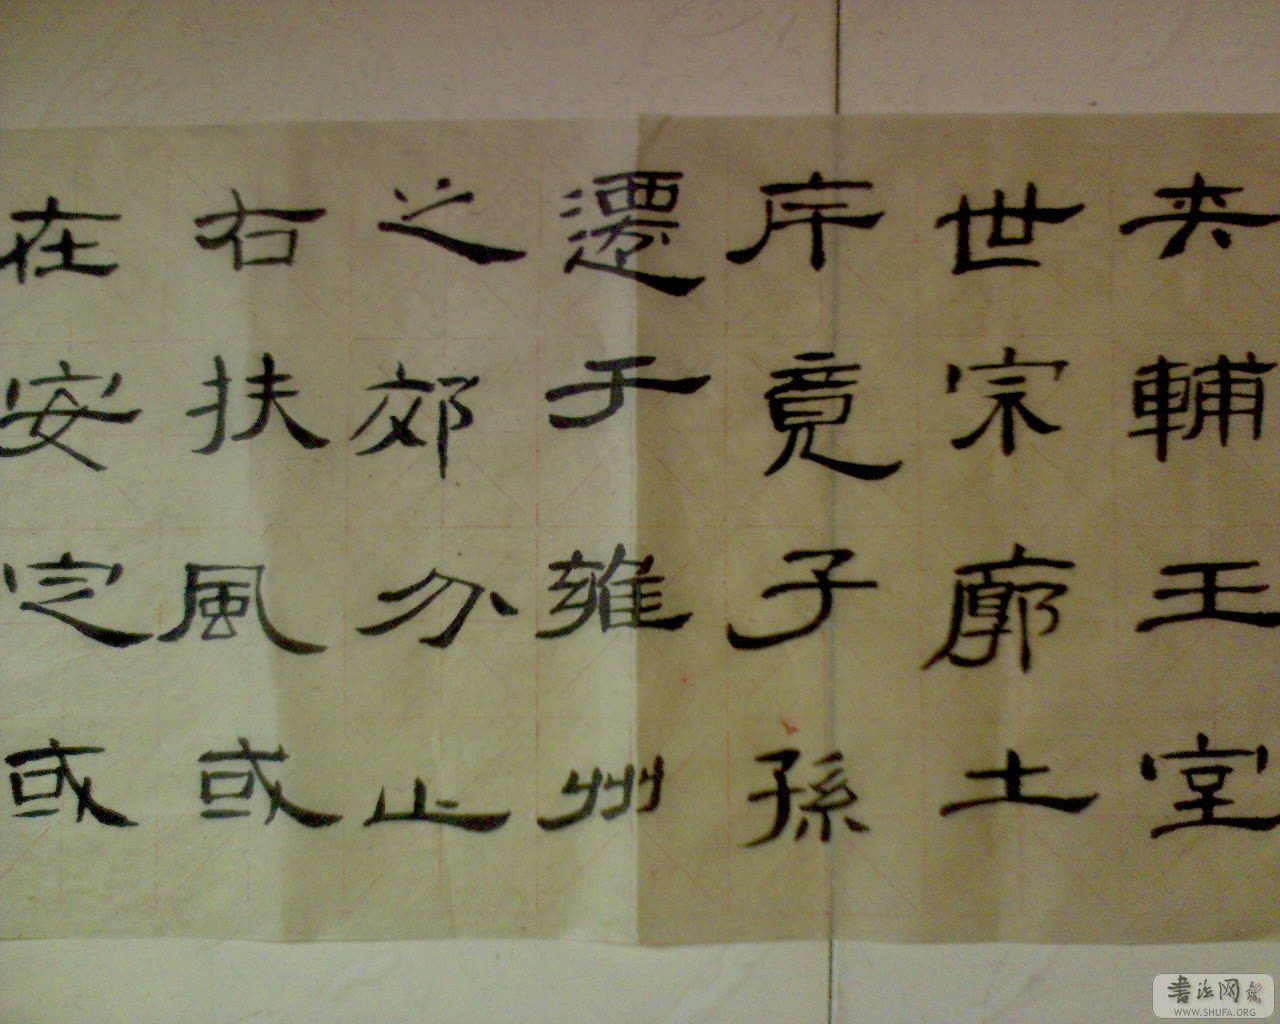 夾輔王室
世宗廓土
斥竟子孫
遷于雍州
之郊分止
右扶風或
在安定或
書法网
WWW.SHUFA.ORG